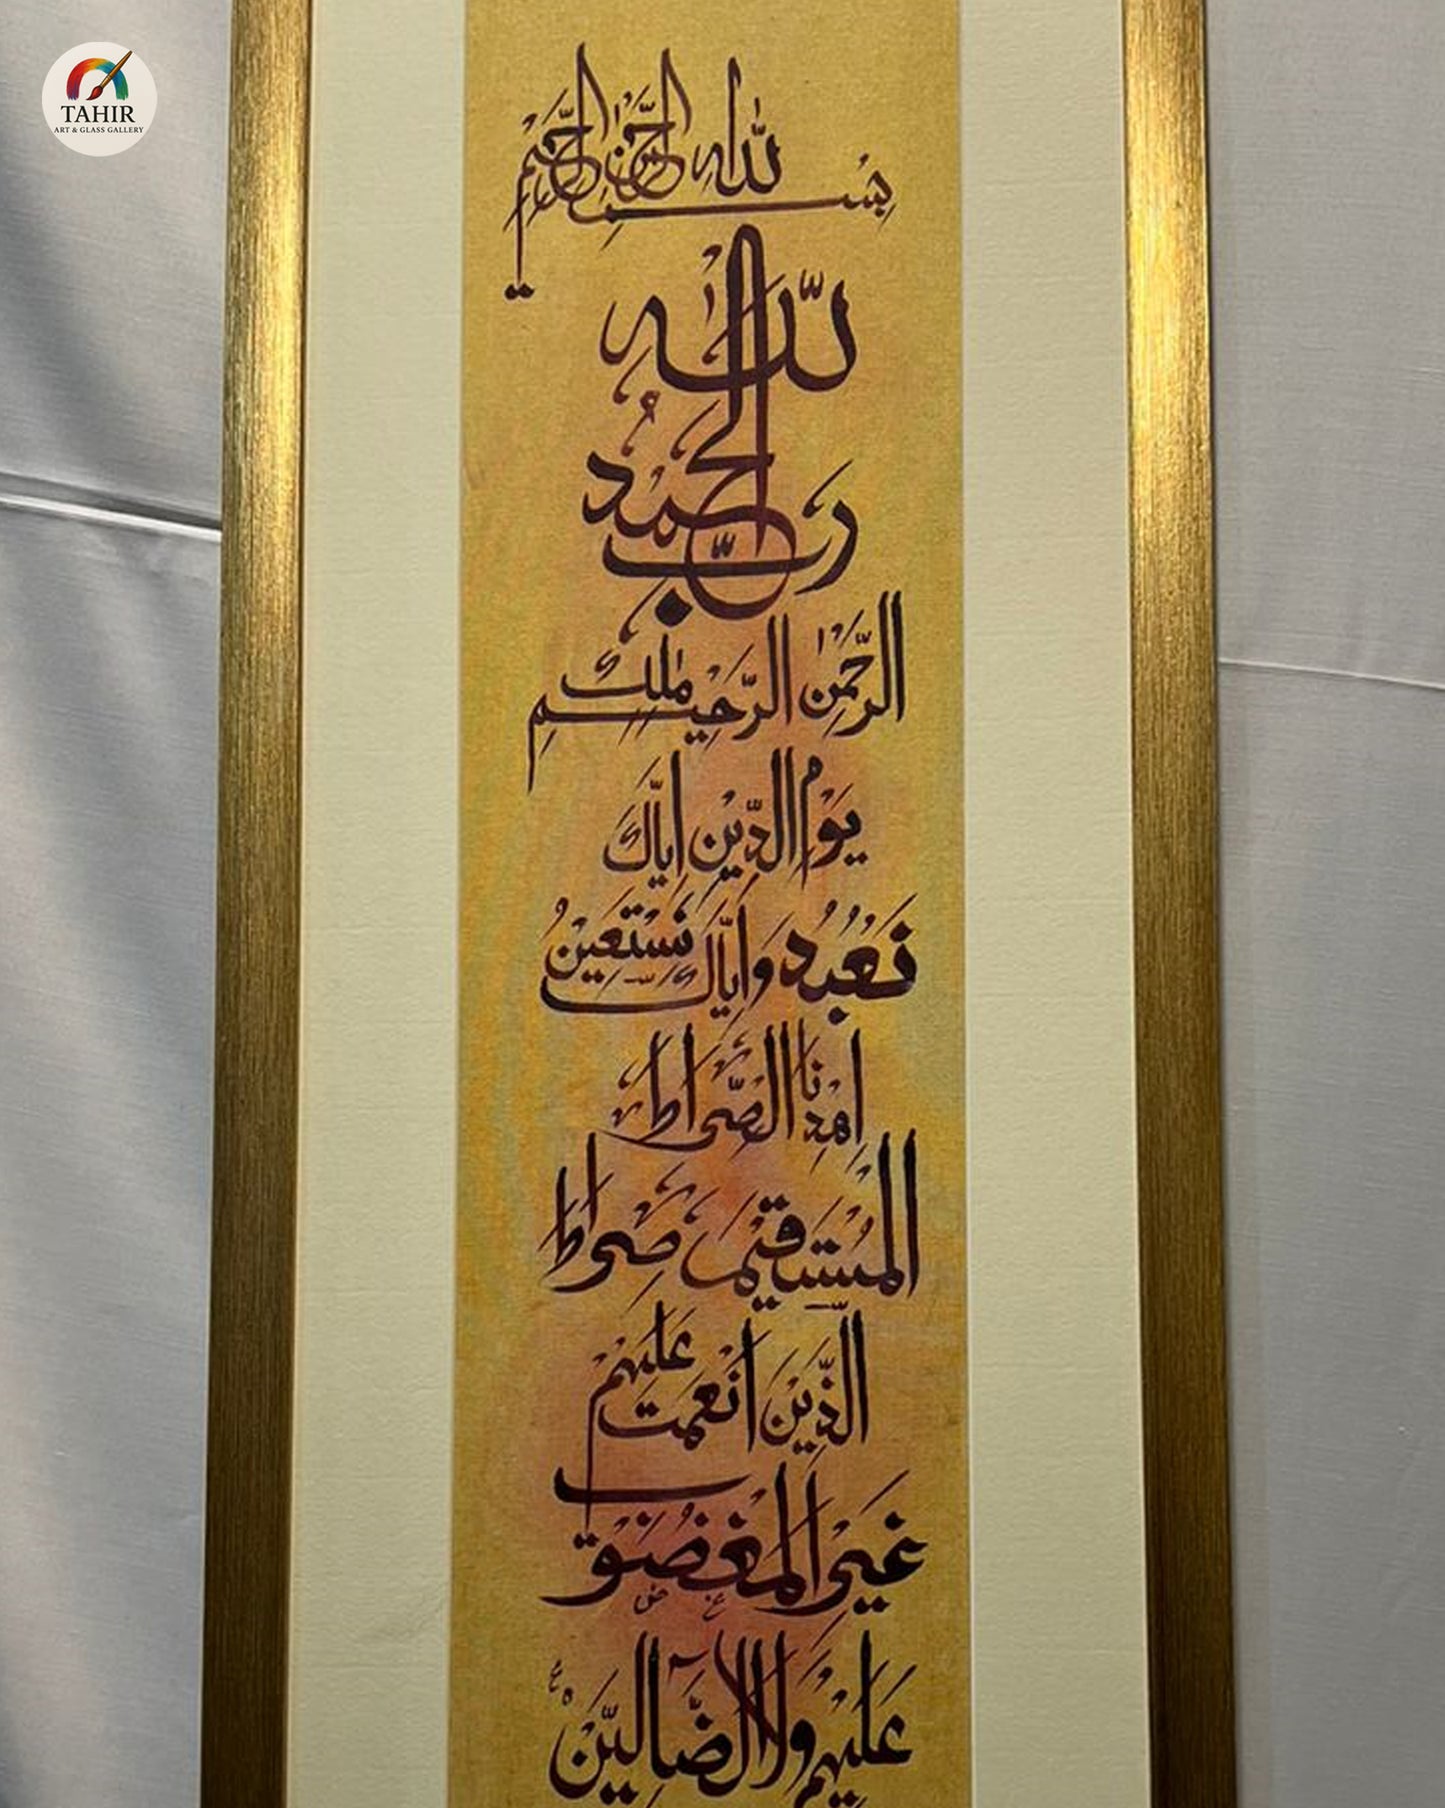 TAHIR
ART & GLASS GALLERY
بِسْمِ اللهِ الرَّحْمٰنِ الرَّحِيْمِ
اَلْحَمْدُ لِلّٰهِ
رَبِّ
الرَّحْمٰنِ الرَّحِيْمِ مٰلِكِ
يَوْمِ الدِّيْنِ اِيَّاكَ
نَعْبُدُ وَاِيَّاكَ نَسْتَعِيْنُ
اِهْدِنَا الصِّرَاطَ
الْمُسْتَقِيْمَ صِرَاطَ
الَّذِيْنَ اَنْعَمْتَ عَلَيْهِمْ
غَيْرِ الْمَغْضُوْبِ
عَلَيْهِمْ وَلَا الضَّآلِّيْنَ